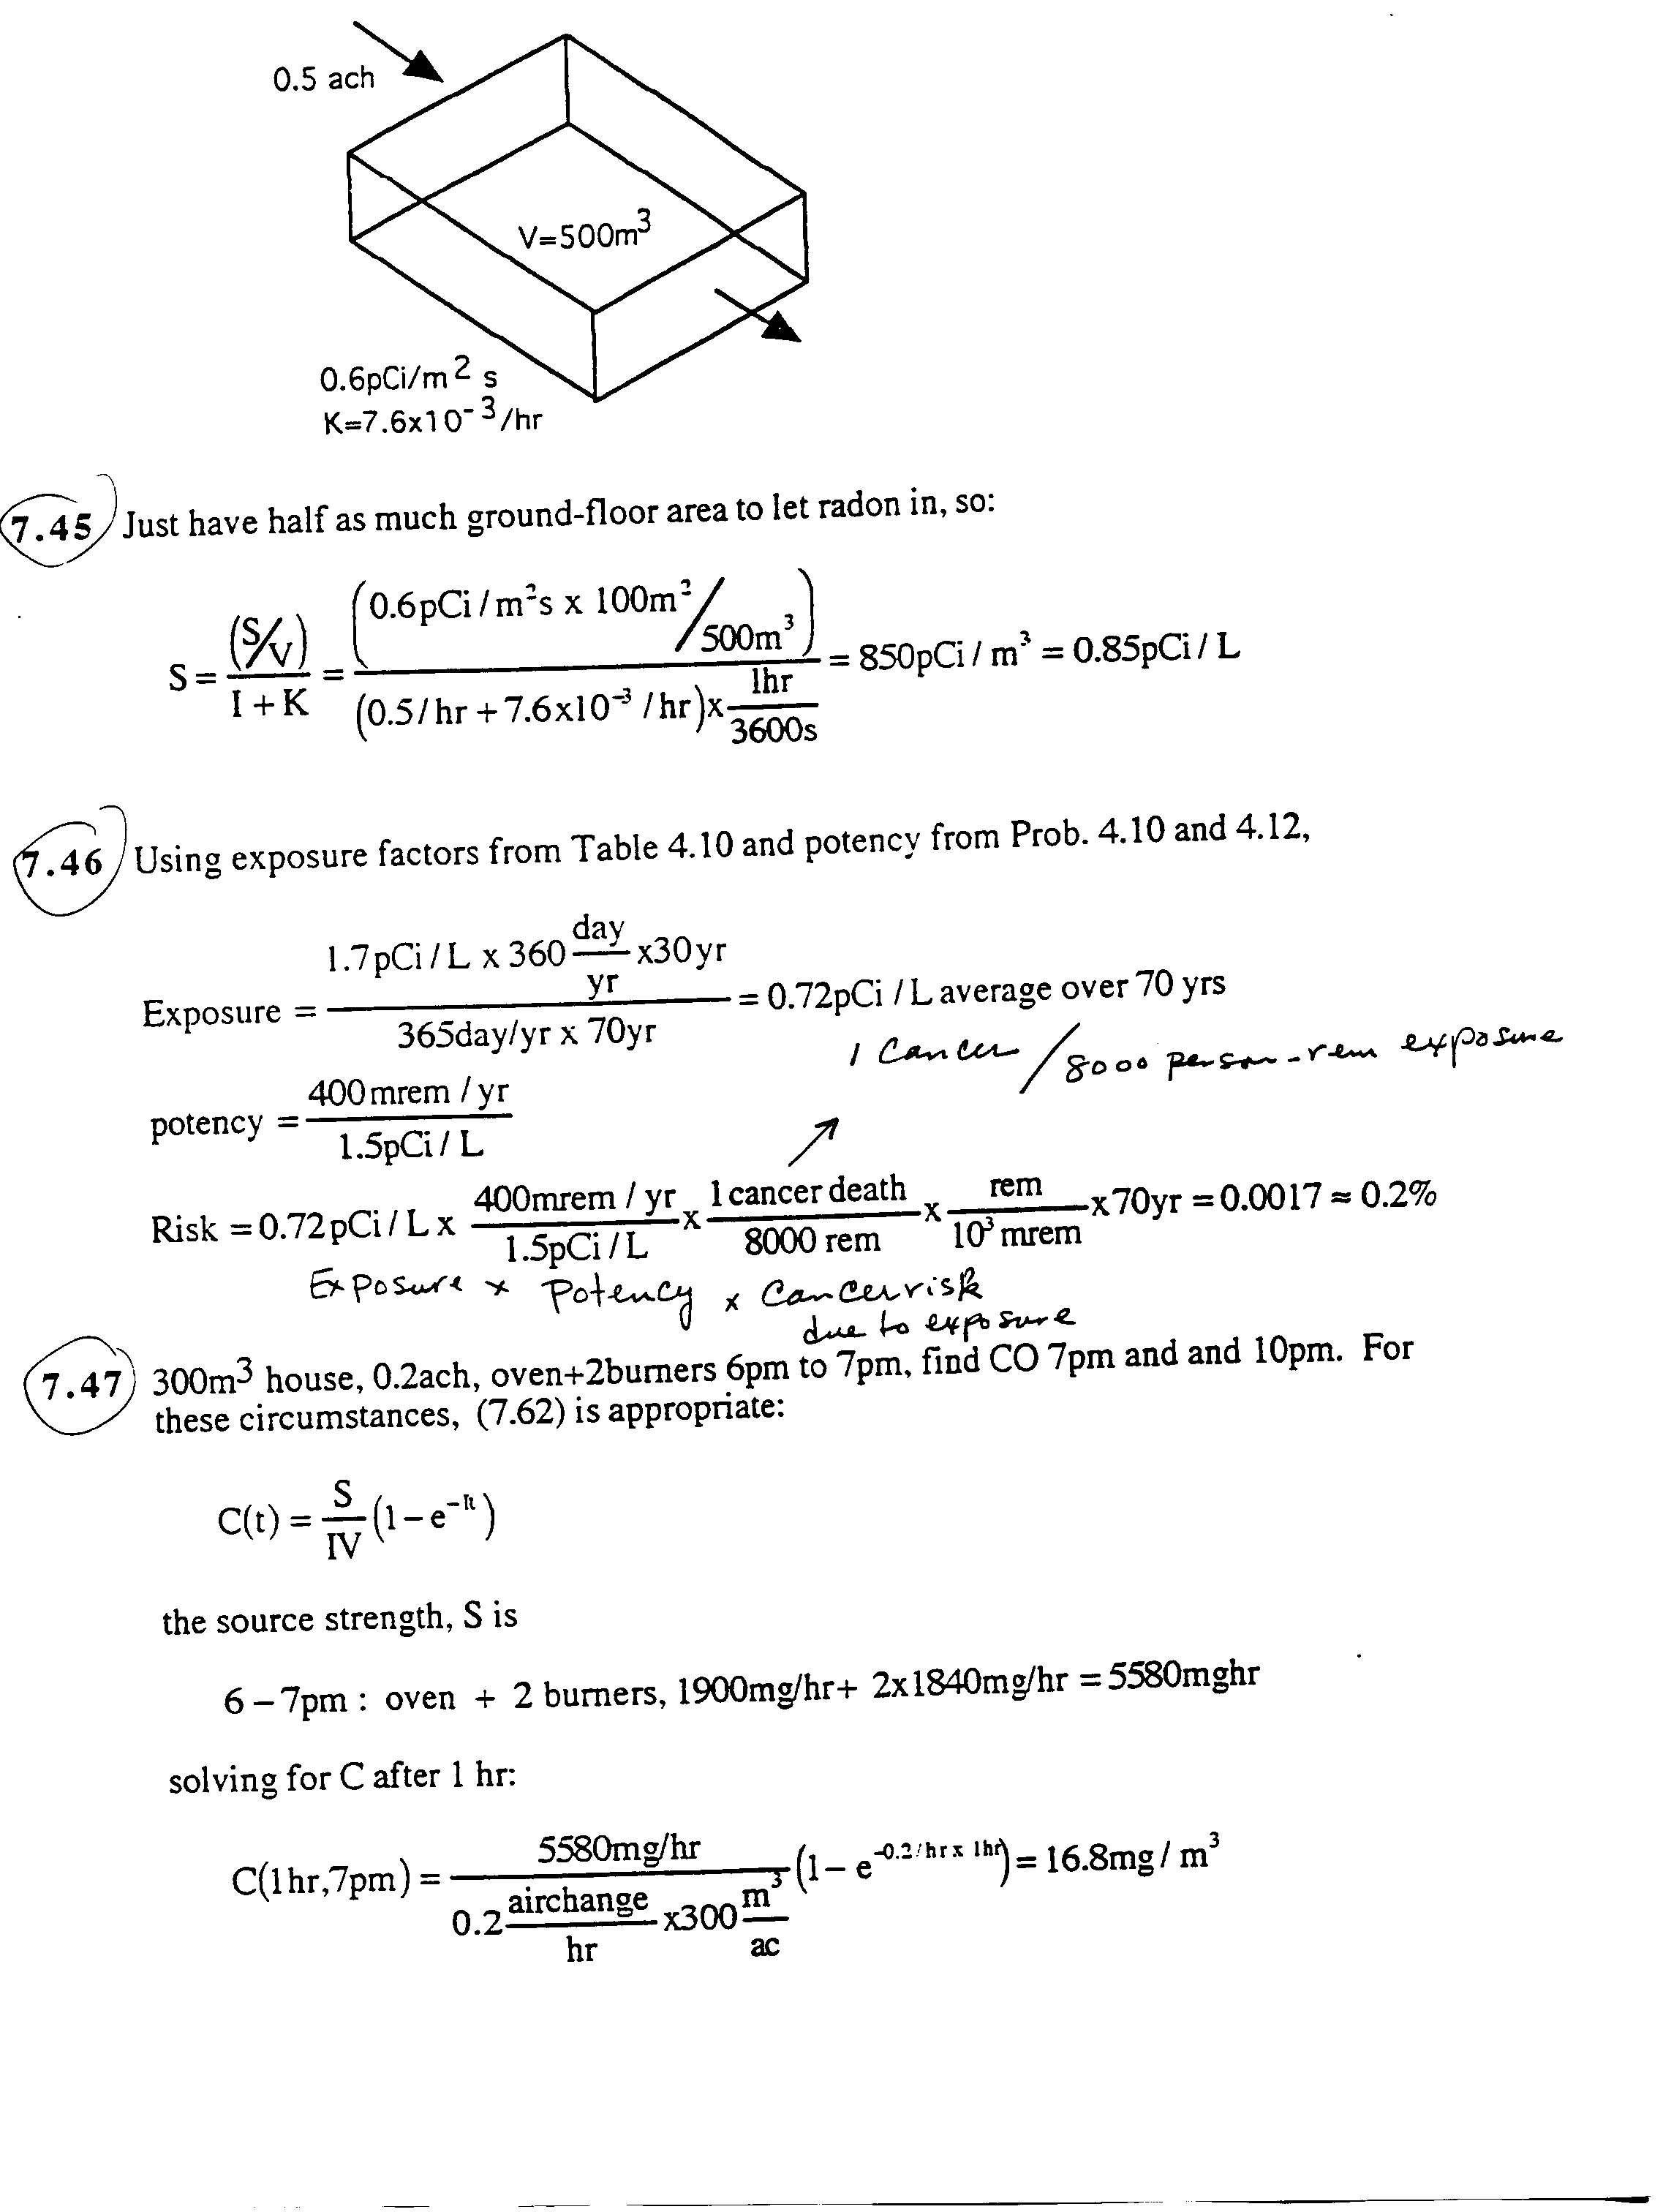 0.5 ach
V=500m³
0.6pCi/m² s
K=7.6x10⁻³/hr
7.45 Just have half as much ground-floor area to let radon in, so:
S = (S/V) / (I + K) = (0.6pCi/m²s x 100m² / 500m³) / ((0.5/hr + 7.6x10⁻³/hr) x 1hr/3600s) = 850pCi/m³ = 0.85pCi/L
7.46 Using exposure factors from Table 4.10 and potency from Prob. 4.10 and 4.12,
Exposure = (1.7pCi/L x 360 day/yr x30yr) / (365day/yr x 70yr) = 0.72pCi/L average over 70 yrs
1 Cancer / 8000 person-rem exposure
potency = 400mrem/yr / 1.5pCi/L
Risk = 0.72pCi/L x (400mrem/yr / 1.5pCi/L) x (1cancer death / 8000 rem) x (rem / 10³mrem) x70yr = 0.0017 ≈ 0.2%
Exposure x Potency x Cancer risk
due to exposure
7.47 300m³ house, 0.2ach, oven+2burners 6pm to 7pm, find CO 7pm and and 10pm. For
these circumstances, (7.62) is appropriate:
C(t) = S/IV (1 − e^−It)
the source strength, S is
6 – 7pm : oven + 2 burners, 1900mg/hr+ 2x1840mg/hr = 5580mghr
solving for C after 1 hr:
C(1hr,7pm) = 5580mg/hr / (0.2 airchange/hr x300 m³/ac) (1− e^−0.2/hr x 1hr) = 16.8mg/m³